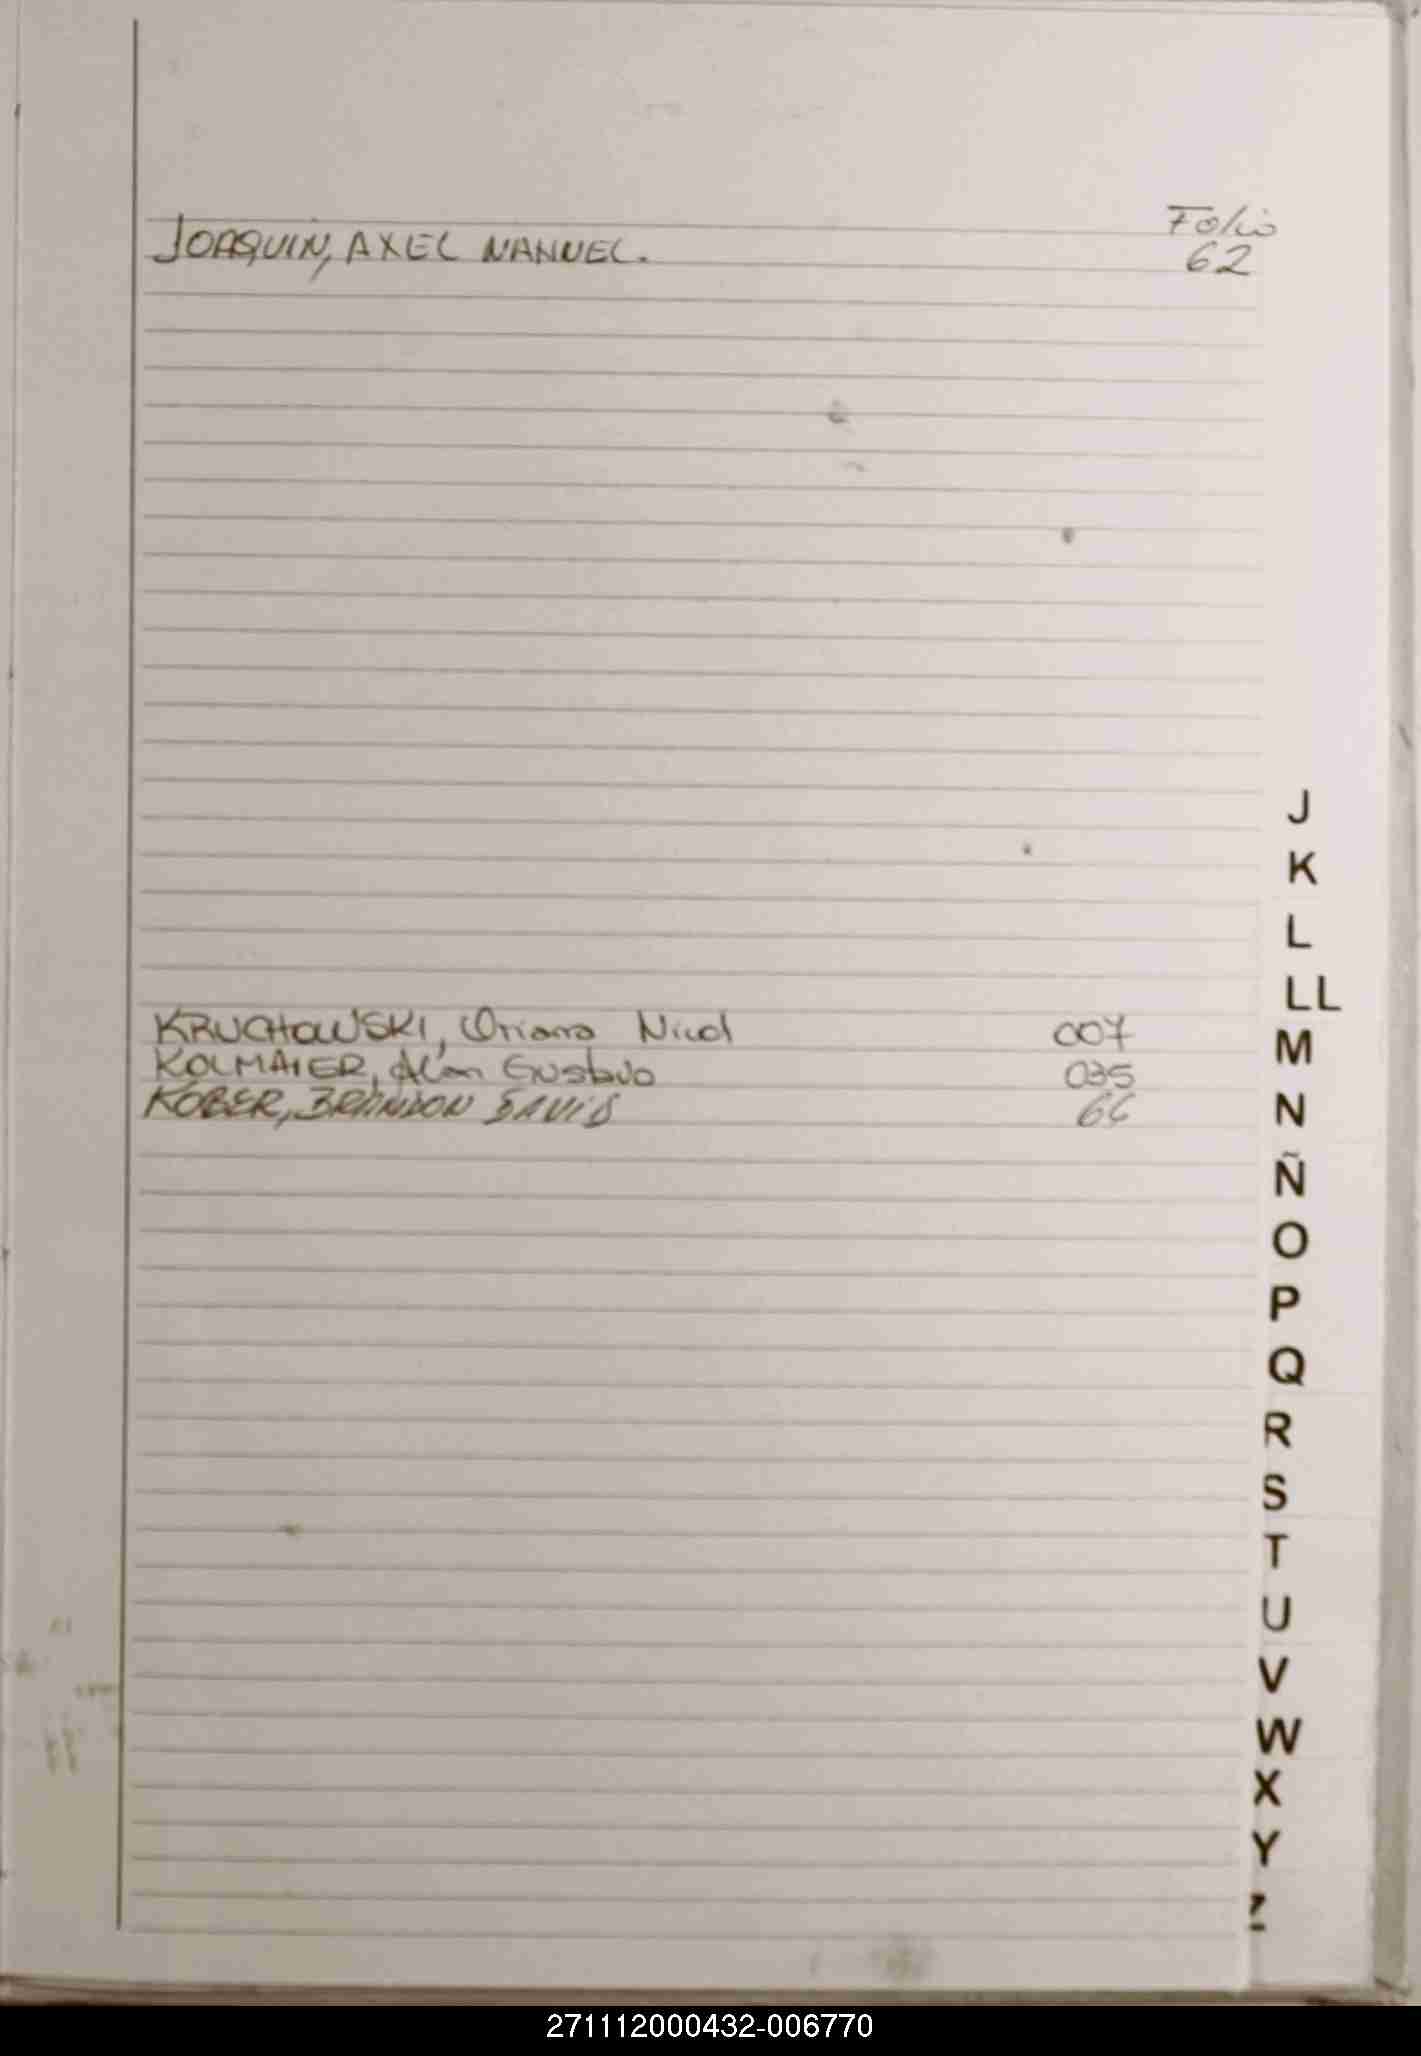 Folio
JOAQUIN, AXEL NANUEL. 62
J
K
L
LL
KRUCHOWSKI, Oriana Nicol 007
M
KOLMAIER, Alan Gustavo 035
KOBER, BRANDON DAVID 66
N
Ñ
O
P
Q
R
S
T
U
V
W
X
Y
Z
271112000432-006770